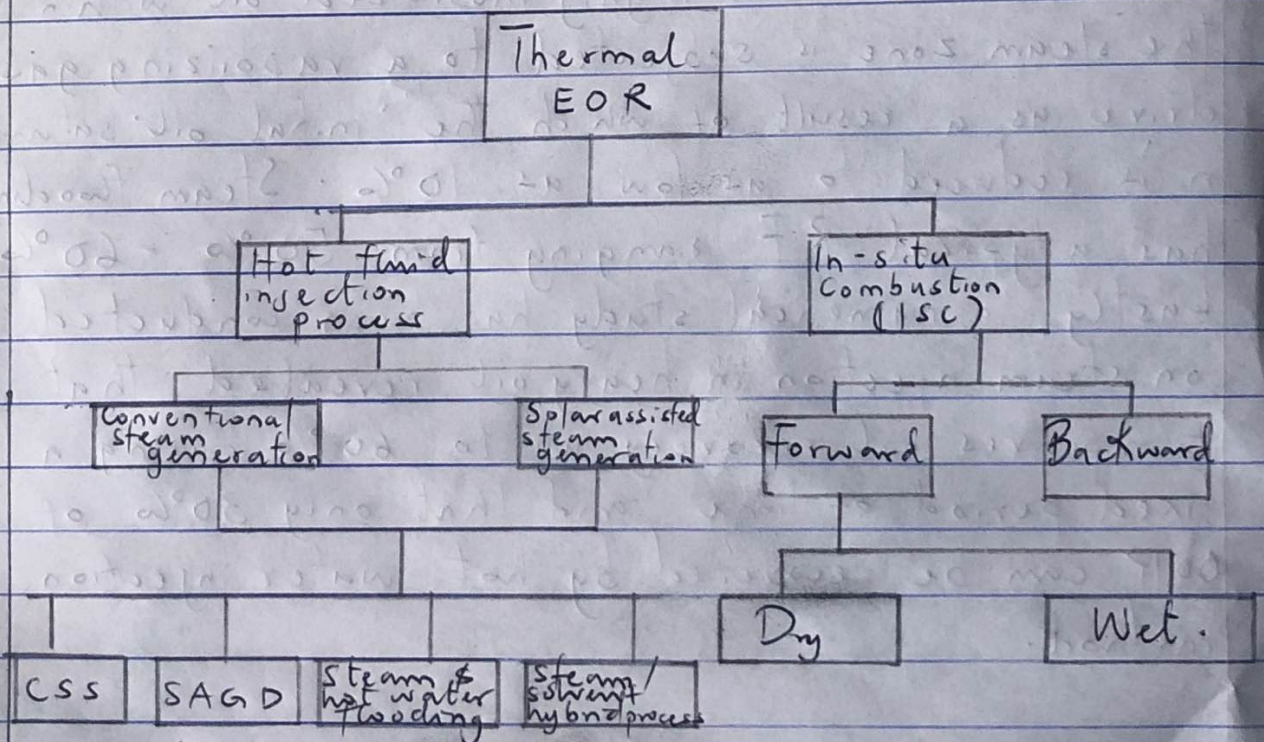 Thermal
EOR
Hot fluid
injection
process
In-situ
Combustion
(ISC)
Conventional
steam
generation
Solar assisted
steam
generation
Forward
Backward
Dry
Wet.
CSS
SAGD
Steam &
hot water
flooding
Steam/
solvent
hybrid process